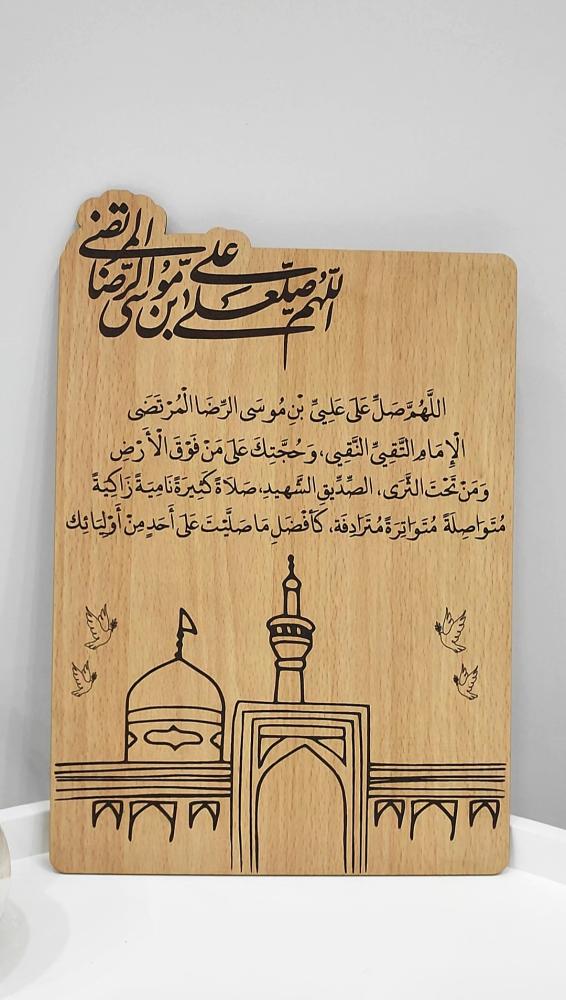 اللّهم صلّ علی علی ابن موسی الرّضا المرتضی
اللَّهُمَّ صَلِّ عَلَى عَلِيِّ بْنِ مُوسَى الرِّضَا الْمُرْتَضَى
الْإِمَامِ التَّقِيِّ النَّقِيِ، وَحُجَّتِكَ عَلَى مَنْ فَوْقَ الْأَرْضِ
وَمَنْ تَحْتَ الثَّرَى، الصِّدِّيقِ الشَّهِيدِ، صَلَاةً كَثِيرَةً نَامِيَةً زَاكِيَةً
مُتَوَاصِلَةً مُتَوَاتِرَةً مُتَرَادِفَة، كَأَفْضَلِ مَا صَلَّيْتَ عَلَى أَحَدٍ مِنْ أَوْلِيَائِك